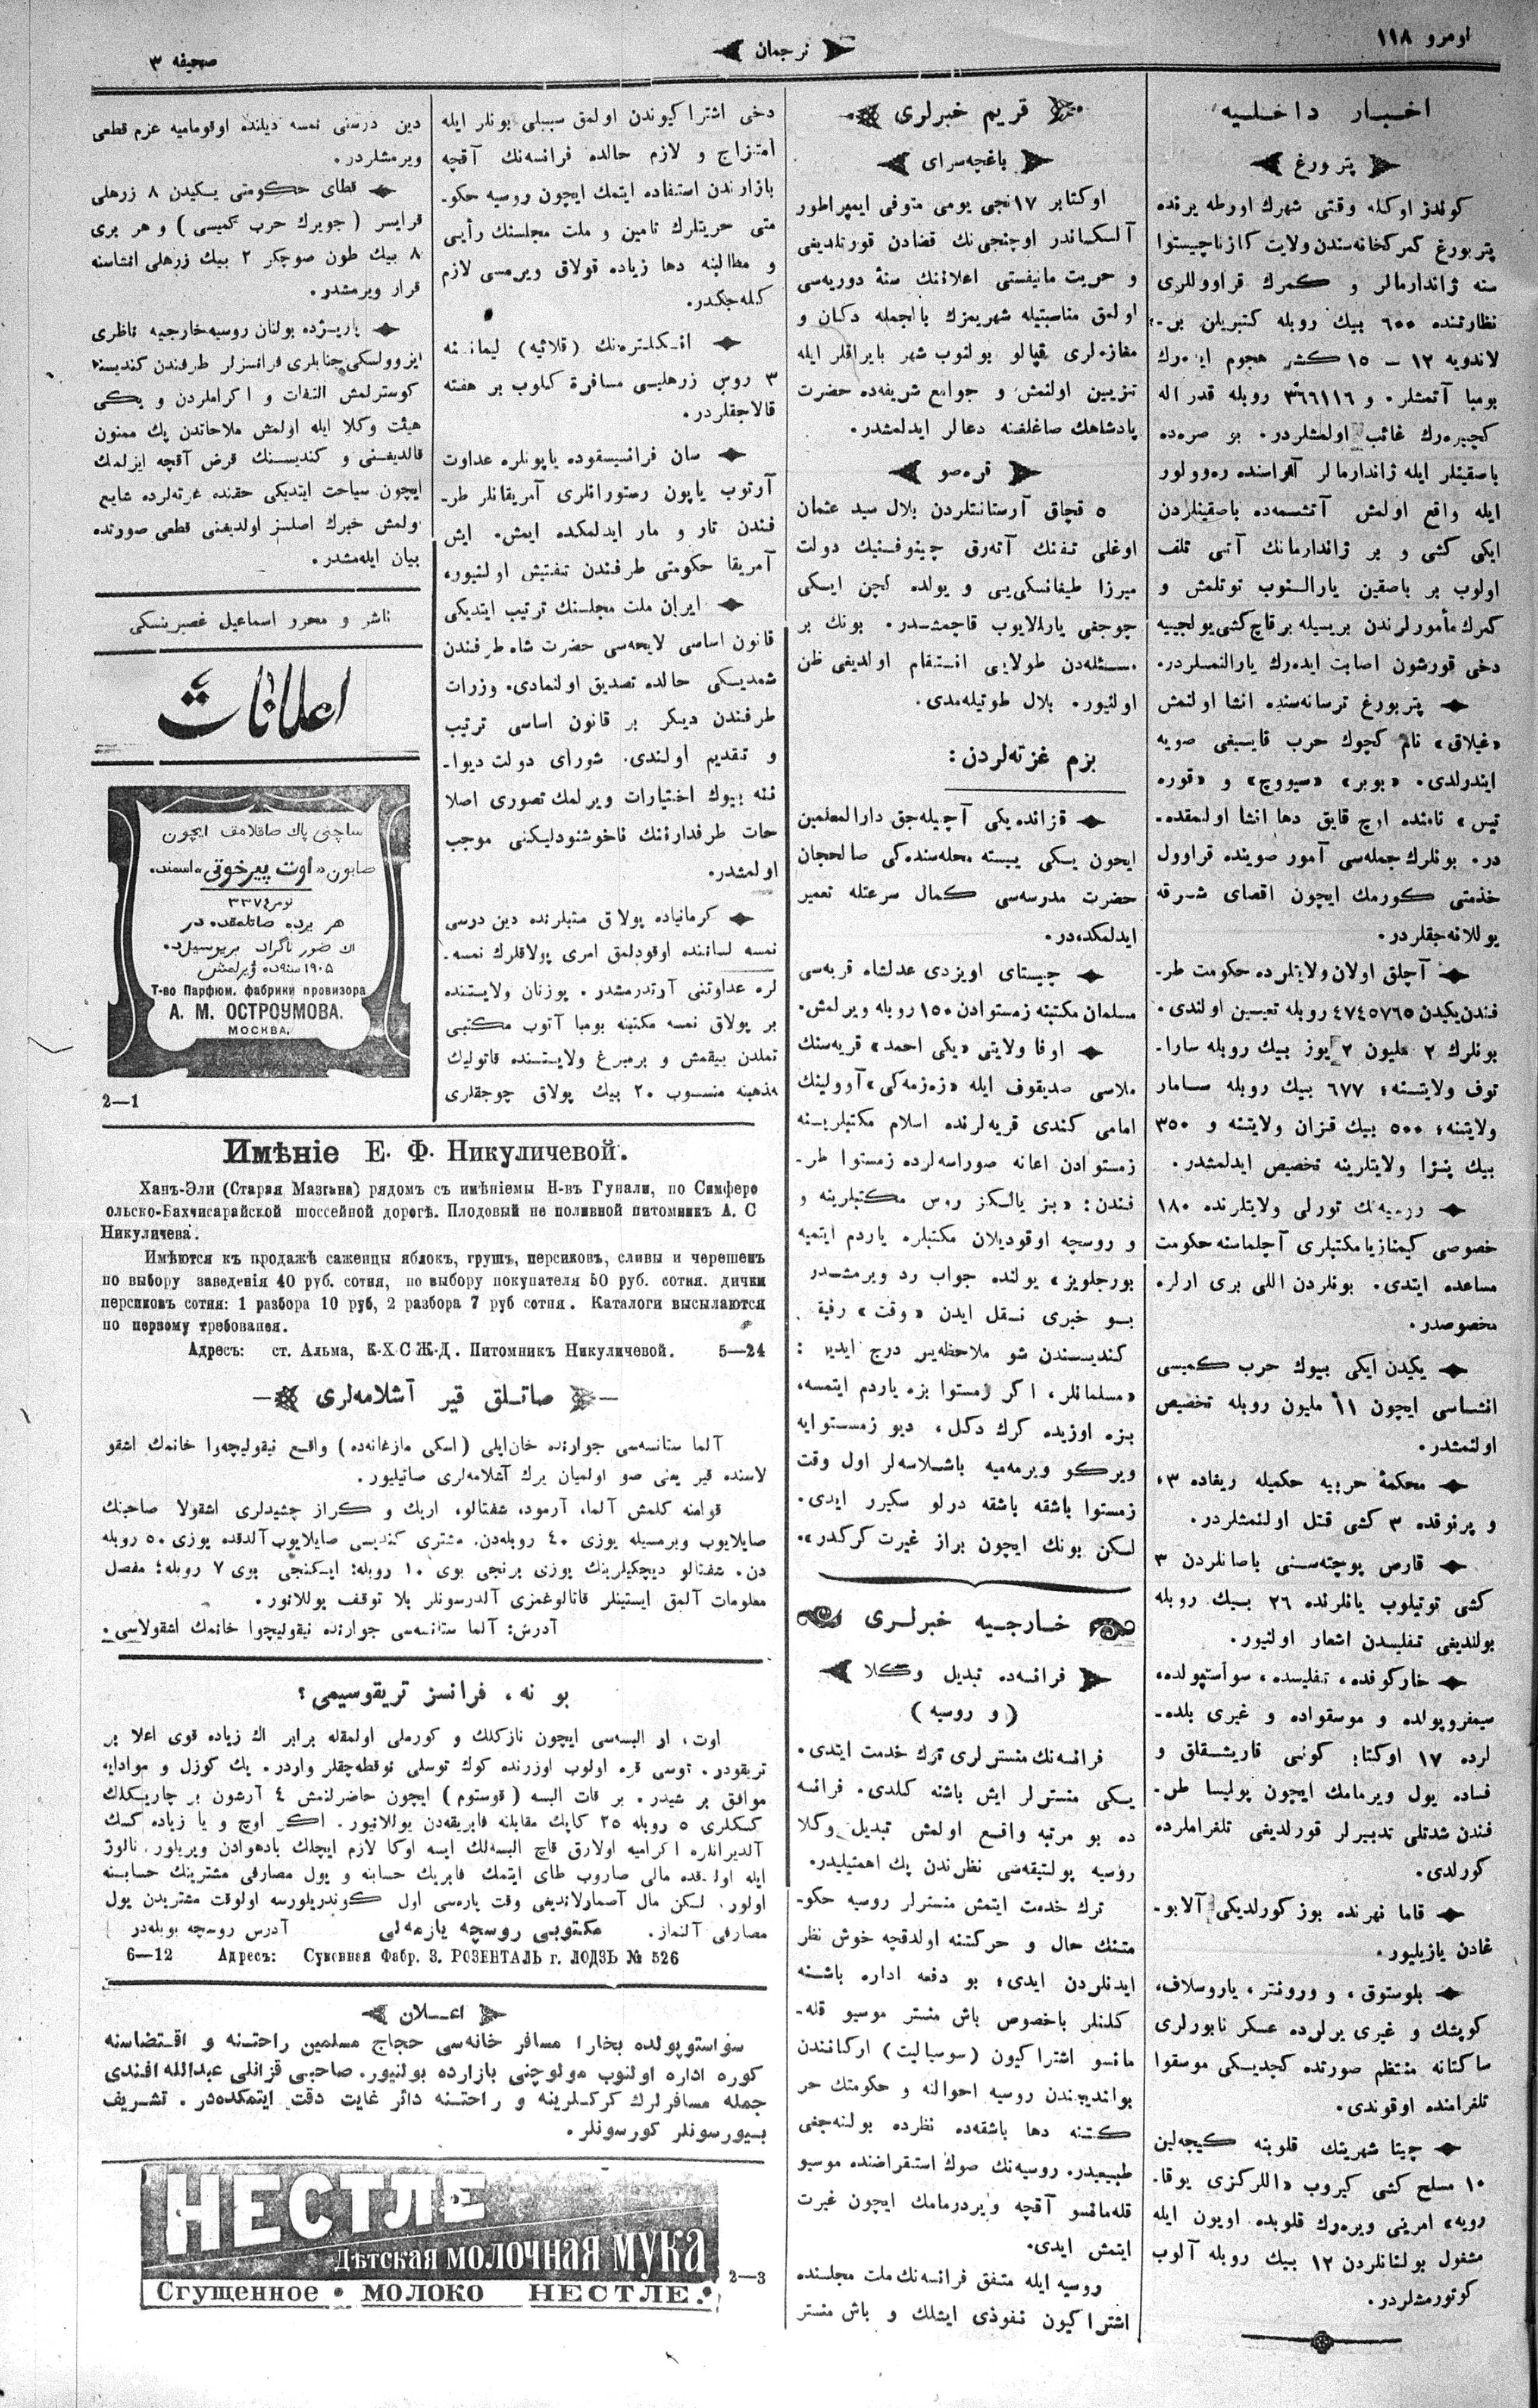 اومرو ١١٨
ترجمان
صحيفه ٣
اخبار داخليه
پتربورغ
كوندز اوكله وقتى شهرك اورطه يرنده
پتربورغ كمركخانه‌سندن ولايت كازناچيستوا
سنه ژاندارمالر و كمرك قراووللرى
نظارتنده ٦٠٠ بيك روبله كتيريلن
لاندويه ١٢ — ١٥ كشى هجوم ايده‌رك
بومبا آتمشلر. و ٣٦٦١١٦ روبله قدر اله
كچيره‌رك غائب اولمشلردر. بو صره‌ده
باصقينلر ايله ژاندارمالر آراسنده ره‌وولور
ايله واقع اولمش آتشمه‌ده باصقينلردن
ايكى كشى و بر ژاندارمانك آتى تلف
اولوب بر باصقين يارالنوب توتلمش و
كمرك مأمورلرندن بريسيله برقاچ كشى يولجييه
دخى قورشون اصابت ايده‌رك يارالنمسلردر.
پتربورغ ترسانه‌سنده انشا اولنمش
«غيلاق» نام كچوك حرب قايسيغى صويه
ايندرلدى. «بوبر» «سيووچ» و «قوره
تيس» نامنده اوچ قايق دها انشا اولنمقده-
در. بونلرك جمله‌سى آمور صوينده قراوول
خذمتى كورمك ايچون اقصاى شرقه
يوللانه‌جقلردر.
آچلق اولان ولايتلرده حكومت طر-
فندن يكيدن ٤٧٤٥٧٦٥ روبله تعيين اولندى.
بونلرك ٢ مليون ٢ يوز بيك روبله سارا-
توف ولايتنه؛ ٦٧٧ بيك روبله سامار
ولايتنه؛ ٥٠٠ بيك قزان ولايتنه و ٣٥٠
بيك پنزا ولايتلرينه تخصيص ايدلمشدر.
روسيه‌نك تورلى ولايتلرنده ١٨٠
خصوصى كيمنازيا مكتبلرى آچلماسنه حكومت
مساعده ايتدى. بونلردن اللى برى ارلره
مخصوصدر.
يكيدن ايكى بيوك حرب كميسى
انشاسى ايچون ١١ مليون روبله تخصيص
اولنمشدر.
محكمهٔ حربيه حكميله ريغاده ٣،
و پرنوقده ٣ كشى قتل اولنمشلردر.
قارص پوچته‌سنى باصانلردن ٣
كشى توتيلوب يانلرنده ٢٦ بيك روبله
بولنديغى تفليسدن اشعار اولنيور.
خاركوفده، تفليسده، سواستپولده،
سيمفروپولده و موسقواده و غيرى بلده-
لرده ١٧ اوكتابر كونى قاريشقلق و
فساده يول ويرمامك ايچون پوليسا طر-
فندن شدتلى تدبيرلر قورلديغى تلغراملرده
كورلدى.
قاما نهرنده بوز كورلديكى آلابو-
غادن يازيليور.
بلوستوق، و ورونتر، ياروسلاف،
كويشك و غيرى يرلرده عسكر نابورلرى
ساكتانه منتظم صورتده كچديكى موسقوا
تلغرامنده اوقوندى.
چيتا شهرينك قلوبنه كيجه‌لين
١٠ مسلح كشى كيروب «اللركزى يوقا-
رويه» امرينى ويره‌رك قلوبده اويون ايله
مشغول بولنانلردن ١٢ بيك روبله آلوب
كوتورمشلردر.
قريم خبرلرى
باغچه‌سراى
اوكتابر ١٧نجى يومى متوفى ايمپراطور
آلكساندر اوچنجى‌نك قضادن قورتلديغى
و حريت مانيفستى اعلاننك سنهٔ دوريه‌سى
اولمق مناسبتيله شهريمزك بالجمله دكان و
مغازه‌لرى قپالو بولنوب شهر بايراقلر ايله
تزيين اولنمش و جوامع شريفه‌ده حضرت
پادشاهك صاغلغنه دعالر ايدلمشدر.
قره‌صو
٥ قچاق آرستانتلردن بلال سيد عثمان
اوغلى تفنك آته‌رق چينوفنيك دولت
ميرزا طيغانسكى‌يى و يولده كچن ايكى
چوجغى يارالايوب قاچمشدر. بونك بر
مسئله‌دن طولايى انتقام اولديغى ظن
اولنيور. بلال طوتيله‌مدى.
بزم غزته‌لردن:
قزانده‌يكى آچيله‌جق دارالمعلمين
ايچون يكى بيسته محله‌سنده‌كى صالحجان
حضرت مدرسه‌سى كمال سرعتله تعمير
ايدلمكده‌در.
چيستاى اويزدى عدلشاه قريه‌سى
مسلمان مكتبنه زمستوادن ١٥٠ روبله ويرلمش.
اوفا ولايتى «يكى احمد» قريه‌سنك
ملاسى صديقوف ايله «زه‌زمه‌كى» آوولينك
امامى كندى قريه‌لرنده اسلام مكتبلرينه
زمستوادن اعانه صوراسه‌لرده زمستوا طر-
فندن: «بز يالكز روس مكتبلرينه و
و روسچه اوقوديلان مكتبلره ياردم ايتميه
بورجلويز» يولنده جواب رد ويرمشدر
بو خبرى نقل ايدن «وقت» رفيق
كنديسندن شو ملاحظه‌يى درج ايدير:
«مسلمانلر، اكر زمستوا بزه ياردم ايتمسه،
بزه اوزيده كرك دكل، ديو زمستوايه
ويركو ويرمه‌ميه باشلاسه‌لر اول وقت
زمستوا باشقه باشقه درلو سكيرر ايدى.
لكن بونك ايچون براز غيرت كركدر».
خارجيه خبرلرى
فرانسه‌ده تبديل وكلا
(و روسيه)
فرانسه‌نك منسترلرى ترك خدمت ايتدى.
يكى منسترلر ايش باشنه كلدى. فرانسه
ده بو مرتبه واقع اولمش تبديل وكلا
روسيه پولتيقه‌سى نظرندن پك اهميتليدر.
ترك خدمت ايتمش منسترلر روسيه حكو-
متنك حال و حركتنه اولدقچه خوش نظر
ايدنلردن ايدى؛ بو دفعه اداره باشنه
كلنلر باخصوص باش منستر موسيو قله-
مانسو اشتراكيون (سوسياليت) اركانندن
بولنديغندن روسيه احوالنه و حكومتك حر
كتنه دها باشقه‌ده نظرده بولنه‌جغى
طبيعيدر. روسيه‌نك صوك استقراضنده موسيو
قله‌مانسو آقچه ويردرمامك ايچون غيرت
ايتمش ايدى.
روسيه ايله متفق فرانسه‌نك ملت مجلسنده
اشتراكيون نفوذى ايشلك و باش منستر
دخى اشتراكيوندن اولمق سببلى بونلر ايله
امتزاج و لازم حالده فرانسه‌نك آقچه
بازارندن استفاده ايتمك ايچون روسيه حكو-
متى حريتلرك تامين و ملت مجلسنك رأيى
و مطالبنه دها زياده قولاق ويرمسى لازم
كله‌جكدر.
انكلتره‌نك (قلائيه) ليماننه
٣ روس زرهليسى مسافرة كلوب بر هفته
قالاجقلردر.
سان فرانسيسقوده ياپونلره عداوت
آرتوب ياپون رستورانلرى آمريقانلر طر-
فندن تار و مار ايدلمكده ايمش. ايش
آمريقا حكومتى طرفندن تفتيش اولنيور،
ايران ملت مجلسنك ترتيب ايتديكى
قانون اساسى لايحه‌سى حضرت شاه طرفندن
شمديكى حالده تصديق اولنمادى. وزرات
طرفندن ديكر بر قانون اساسى ترتيب
و تقديم اولندى. شوراى دولت ديوا-
ننه بيوك اختيارات ويرلمك تصورى اصلا
حات طرفدارننك ناخوشنودليكنى موجب
اولمشدر.
كرمانياده پولاق متبلرنده دين درسى
نمسه لساننده اوقودلمق امرى پولاقلرك نمسه-
لره عداوتنى آرتدرمشدر. پوزنان ولايتنده
بر پولاق نمسه مكتبنه بومبا آتوب مكتبى
تملدن ييقمش و برمبرغ ولايتنده قاتوليك
مذهبنه منسوب ٢٠ بيك پولاق چوجقلرى
دين درسنى نمسه ديلنده اوقوماميه عزم قطعى
ويرمشلردر.
قطاى حكومتى يكيدن ٨ زرهلى
قرايسر (جويرك حرب كميسى) و هر برى
٨ بيك طون صوچكر ٢ بيك زرهلى انشاسنه
قرار ويرمشدر.
پاريژده بولنان روسيه خارجيه ناظرى
ايزوولسكى جنابلرى فرانسزلر طرفندن كنديسنه
كوسترلمش التفات و اكراملردن و يكى
هيئت وكلا ايله اولمش ملاحاتدن پك ممنون
قالديغنى و كنديسنك قرض آقچه ايزلمك
ايچون سياحت ايتديكى حقنده غزته‌لرده شايع
ولمش خبرك اصلسز اولديغنى قطعى صورتده
بيان ايله‌مشدر.
ناشر و محررو اسماعيل غصبرينسكى
اعلانات
ساچنى پاك صاقلامق ايچون
صابون «اوت پيرخوتى» اسمنده
نومرو ٣٣٧٤
هر يرده صاتلمقده در
١٩٠٥ سنه‌ده ويرلمش
Т-во Парфюм. фабрики провизора
А. М. ОСТРОУМОВА.
МОСКВА.
2—1
Имѣніе Е. Ф. Никуличевой.
Ханъ-Эли (Старая Мазгана) рядомъ съ имѣніемы Н-въ Гунали, по Симферо
ольско-Бахчисарайской шоссейной дорогѣ. Плодовый не поливной питомникъ А. С
Никуличева.
Имѣются къ продажѣ саженцы яблокъ, грушъ, персиковъ, сливы и черешенъ
по выбору заведенія 40 руб. сотня, по выбору покупателя 50 руб. сотня. дички
персиковъ сотня: 1 разбора 10 руб, 2 разбора 7 руб сотня. Каталоги высылаются
по первому требованея.
Адресъ: ст. Альма, К-Х-С Ж-Д. Питомникъ Никуличевой. 5—24
صاتلق قير آشلامه‌لرى
آلما ستانسه‌سى جوارنده خان‌ايلى (اسكى مازغانه‌ده) واقع نيقوليچه‌وا خانمك اشقو
لاسنده قير يعنى صو اولميان يرك آشلامه‌لرى صاتيليور.
قوامنه كلمش آلما، آرمود، شفتالو، اريك و كراز چشيدلرى اشقولا صاحبنك
صايلايوب ويرمسيله يوزى ٤٠ روبله‌دن. مشترى كنديسى صايلايوب آلدقده يوزى ٥٠ روبله
دن. شفتالو ديچكيلرينك يوزى برنجى بوى ١٠ روبله: ايكنجى بوى ٧ روبله؛ مفصل
معلومات آلمق ايستينلر قاتالوغمزى آلدرسونلر بلا توقف يوللانور.
آدرش: آلما ستانسه‌سى جوارنده نيقوليچوا خانمك اشقولاسى.
بو نه، فرانسز تريقوسيمى؟
اوت، ار البسه‌سى ايچون نازكلك و كورملى اولمقله برابر اك زياده قوى اعلا بر
تريقودر. توسى قره اولوب اوزرنده كوك توسلى نوقطه‌چقلر واردر. پك كوزل و موادايه
موافق بر شيدر. بر قات البسه (قوستوم) ايچون حاضرلنمش ٤ آرشون بر چاريكلك
كسكلرى ٥ روبله ٢٥ كاپك مقابلنه فابريقه‌دن يوللانيور. اكر اوچ و يا زياده كسك
آلديرانلره اكراميه اولارق قاچ البسه‌لك ايسه اوكا لازم ايچلك بادهوادن ويريلور. نالوژ
ايله اولنقده مالى صاروب طاى ايتمك فابريك حسابنه و يول مصارفى مشترينك حسابنه
اولور. لكن مال آصمارلانديغى وقت پاره‌سى اول كوندريلورسه اولوقت مشتريدن يول
مصارفى آلنماز. مكتوبى روسچه يازمه‌لى آدرس روسچه بويله‌در
6—12 Адресъ: Суконная Фабр. З. РОЗЕНТАЛЬ г. ЛОДЗЬ № 526
اعلان
سواستوپولده بخارا مسافر خانه‌سى حجاج مسلمين راحتنه و اقتضاسنه
كوره اداره اولنوب مولوچنى بازارده بولنيور. صاحبى قزانلى عبدالله افندى
جمله مسافرلرك كركلرينه و راحتنه دائر غايت دقت ايتمكده‌در. تشريف
بيورسونلر كورسونلر.
НЕСТЛЕ
Дѣтская МОЛОЧНАЯ МУКА
Сгущенное • МОЛОКО НЕСТЛЕ.
2—3